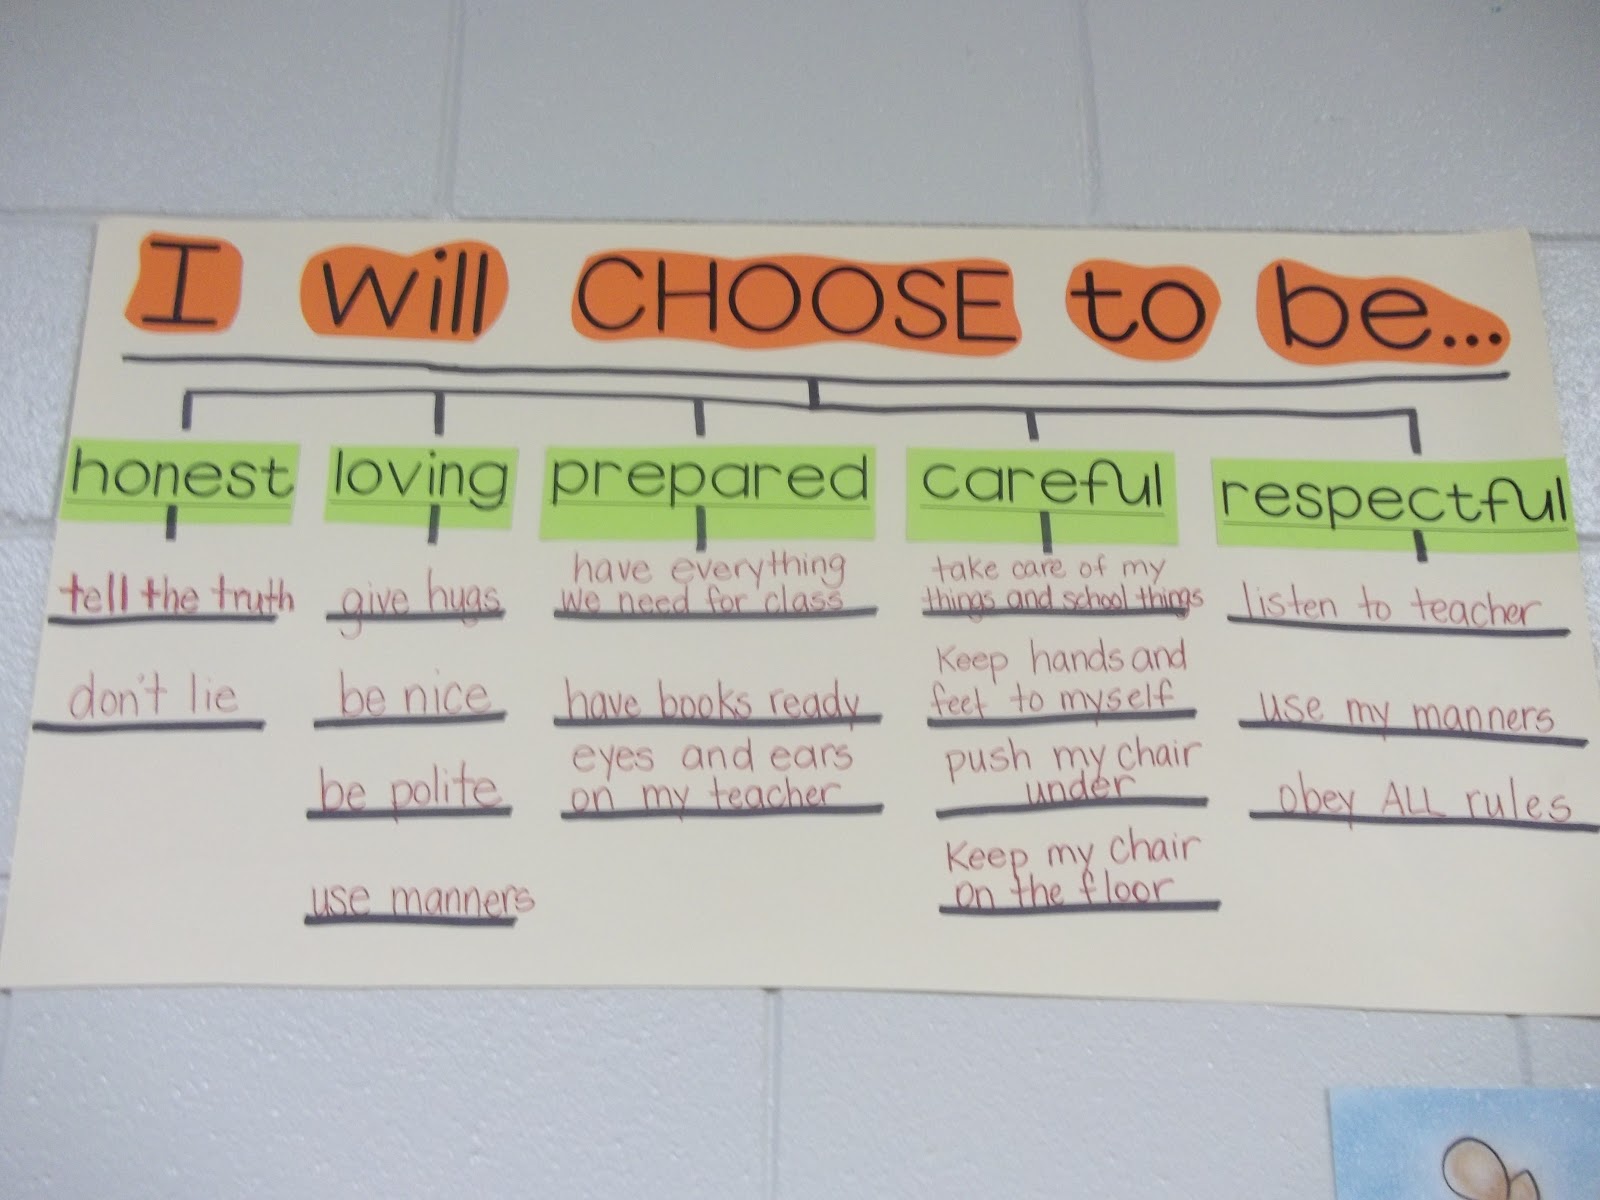 I will CHOOSE to be...
honest
tell the truth
don't lie
loving
give hugs
be nice
be polite
use manners
prepared
have everything
we need for class
have books ready
eyes and ears
on my teacher
careful
take care of my
things and school things
Keep hands and
feet to myself
push my chair
under
Keep my chair
on the floor
respectful
listen to teacher
use my manners
obey ALL rules